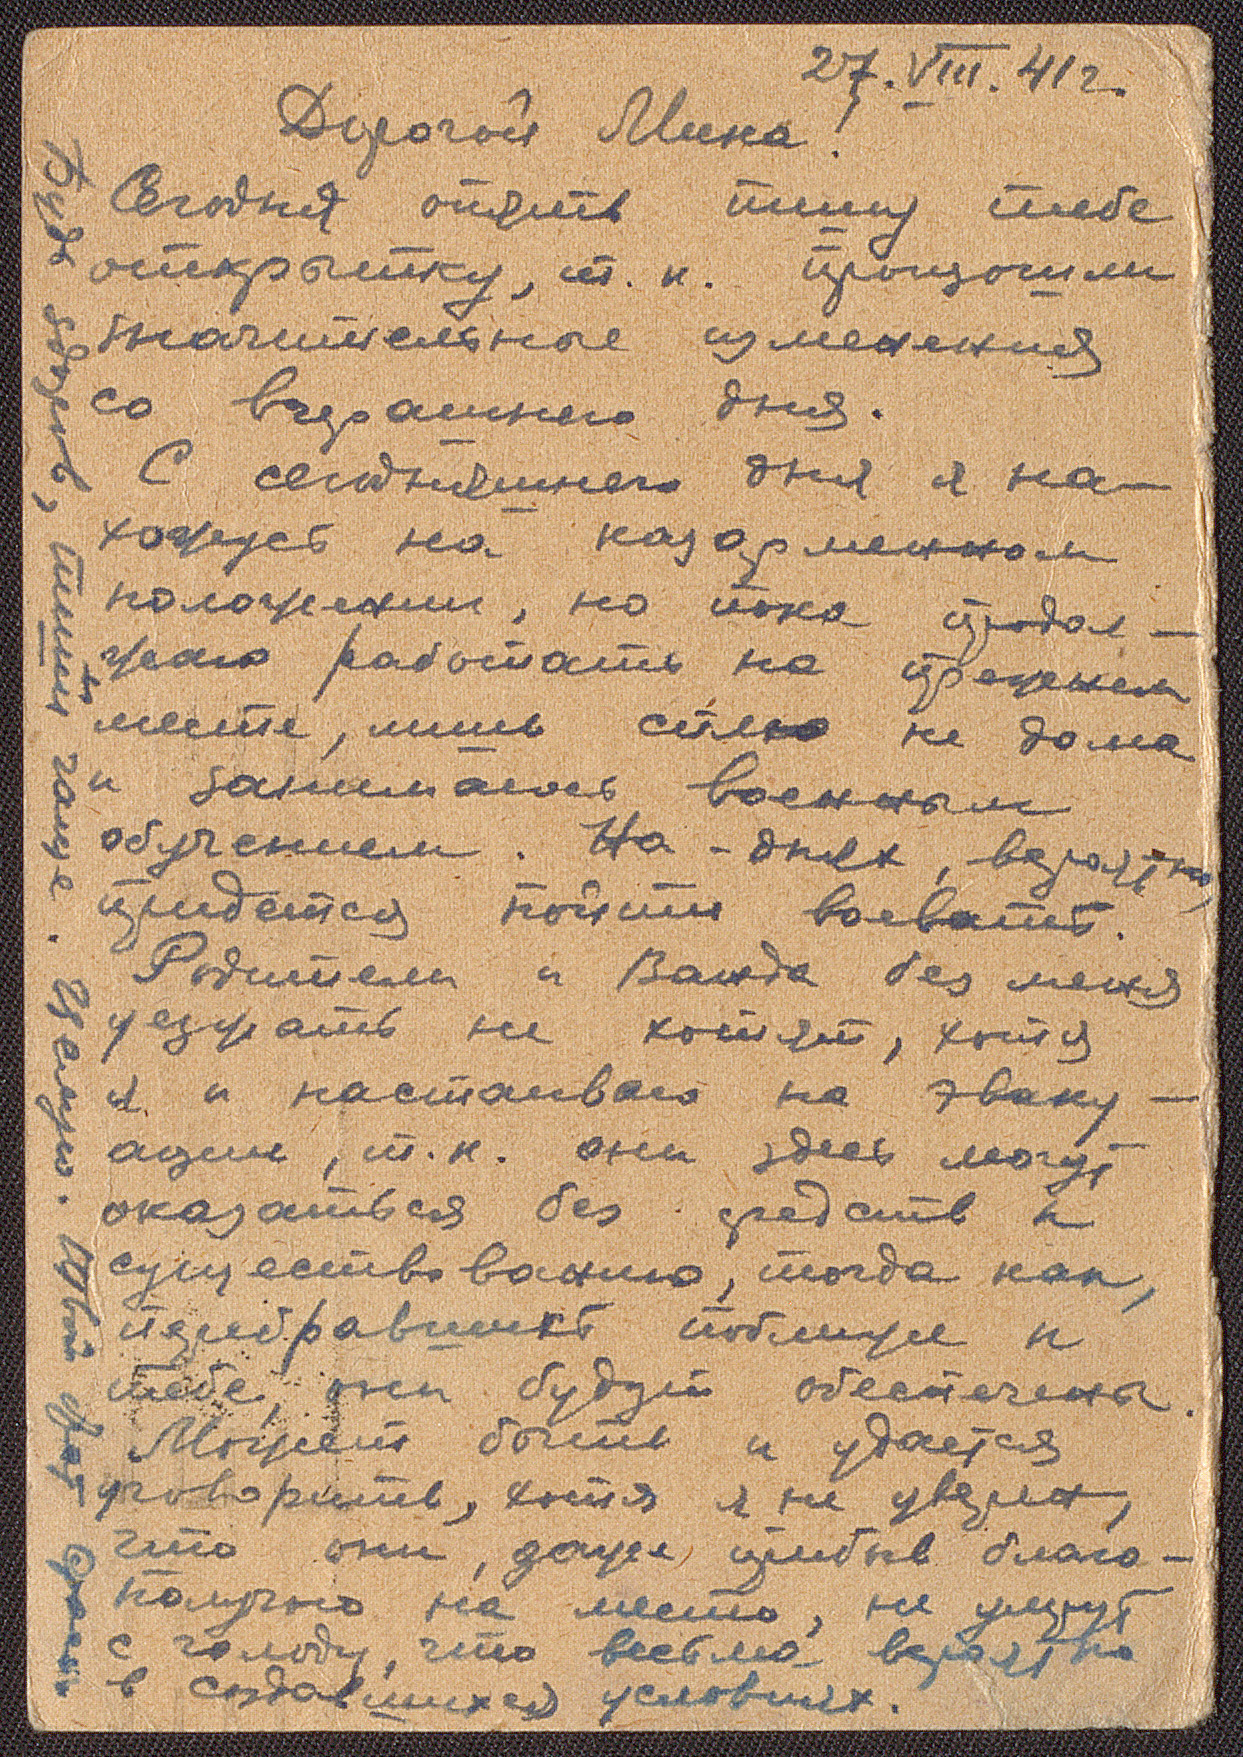 27.VIII.41г.
Дорогой Мика!
Сегодня опять пишу тебе
открытку, т.к. произошли
значительные изменения
со вчерашнего дня.
С сегодняшнего дня я на-
хожусь на казарменном
положении, но пока продол-
жаю работать на прежнем
месте, лишь сплю не дома
и занимаюсь военным
обучением. На-днях, вероятно,
придется пойти воевать.
Родители и Ванда без меня
уезжать не хотят, хотя
я и настаиваю на эваку-
ации, т.к. они здесь могут
оказаться без средств к
существованию, тогда как,
перебравшись поближе к
тебе, они будут обеспечены.
Может быть и удастся
уговорить, хотя я не уверен,
что они, даже прибыв благо-
получно на место, не умрут
с голоду, что весьма вероятно
в создавшихся условиях.
Будь здоров, пиши чаще. Целую. Твой брат